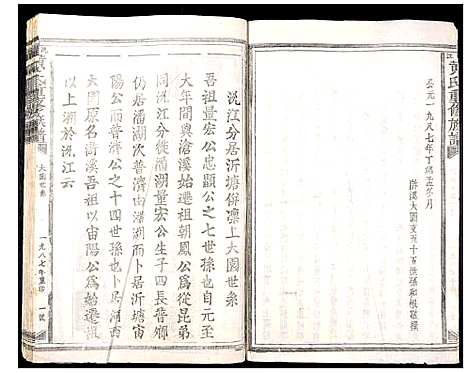 黄氏重修族譜
公元一九八七年丁卯孟冬月
沅江分居沂塘保凛上大園世系
吾祖量宏公忠顯公之七世孫也自元至
大年間與滄溪始遷祖朝鳳公從昆弟
沅江分徙潘湖量宏公生子四長晉鄉
仍居潘湖次晉濟由潘湖而卜居沂塘宙
陽公而晉濟公之十四世孫也卜居河西
大園原名
溪吾祖以宙陽公為始遷祖
以上溯於沅江云
黄氏重修族譜
大園世系
一九八七年重印
一號